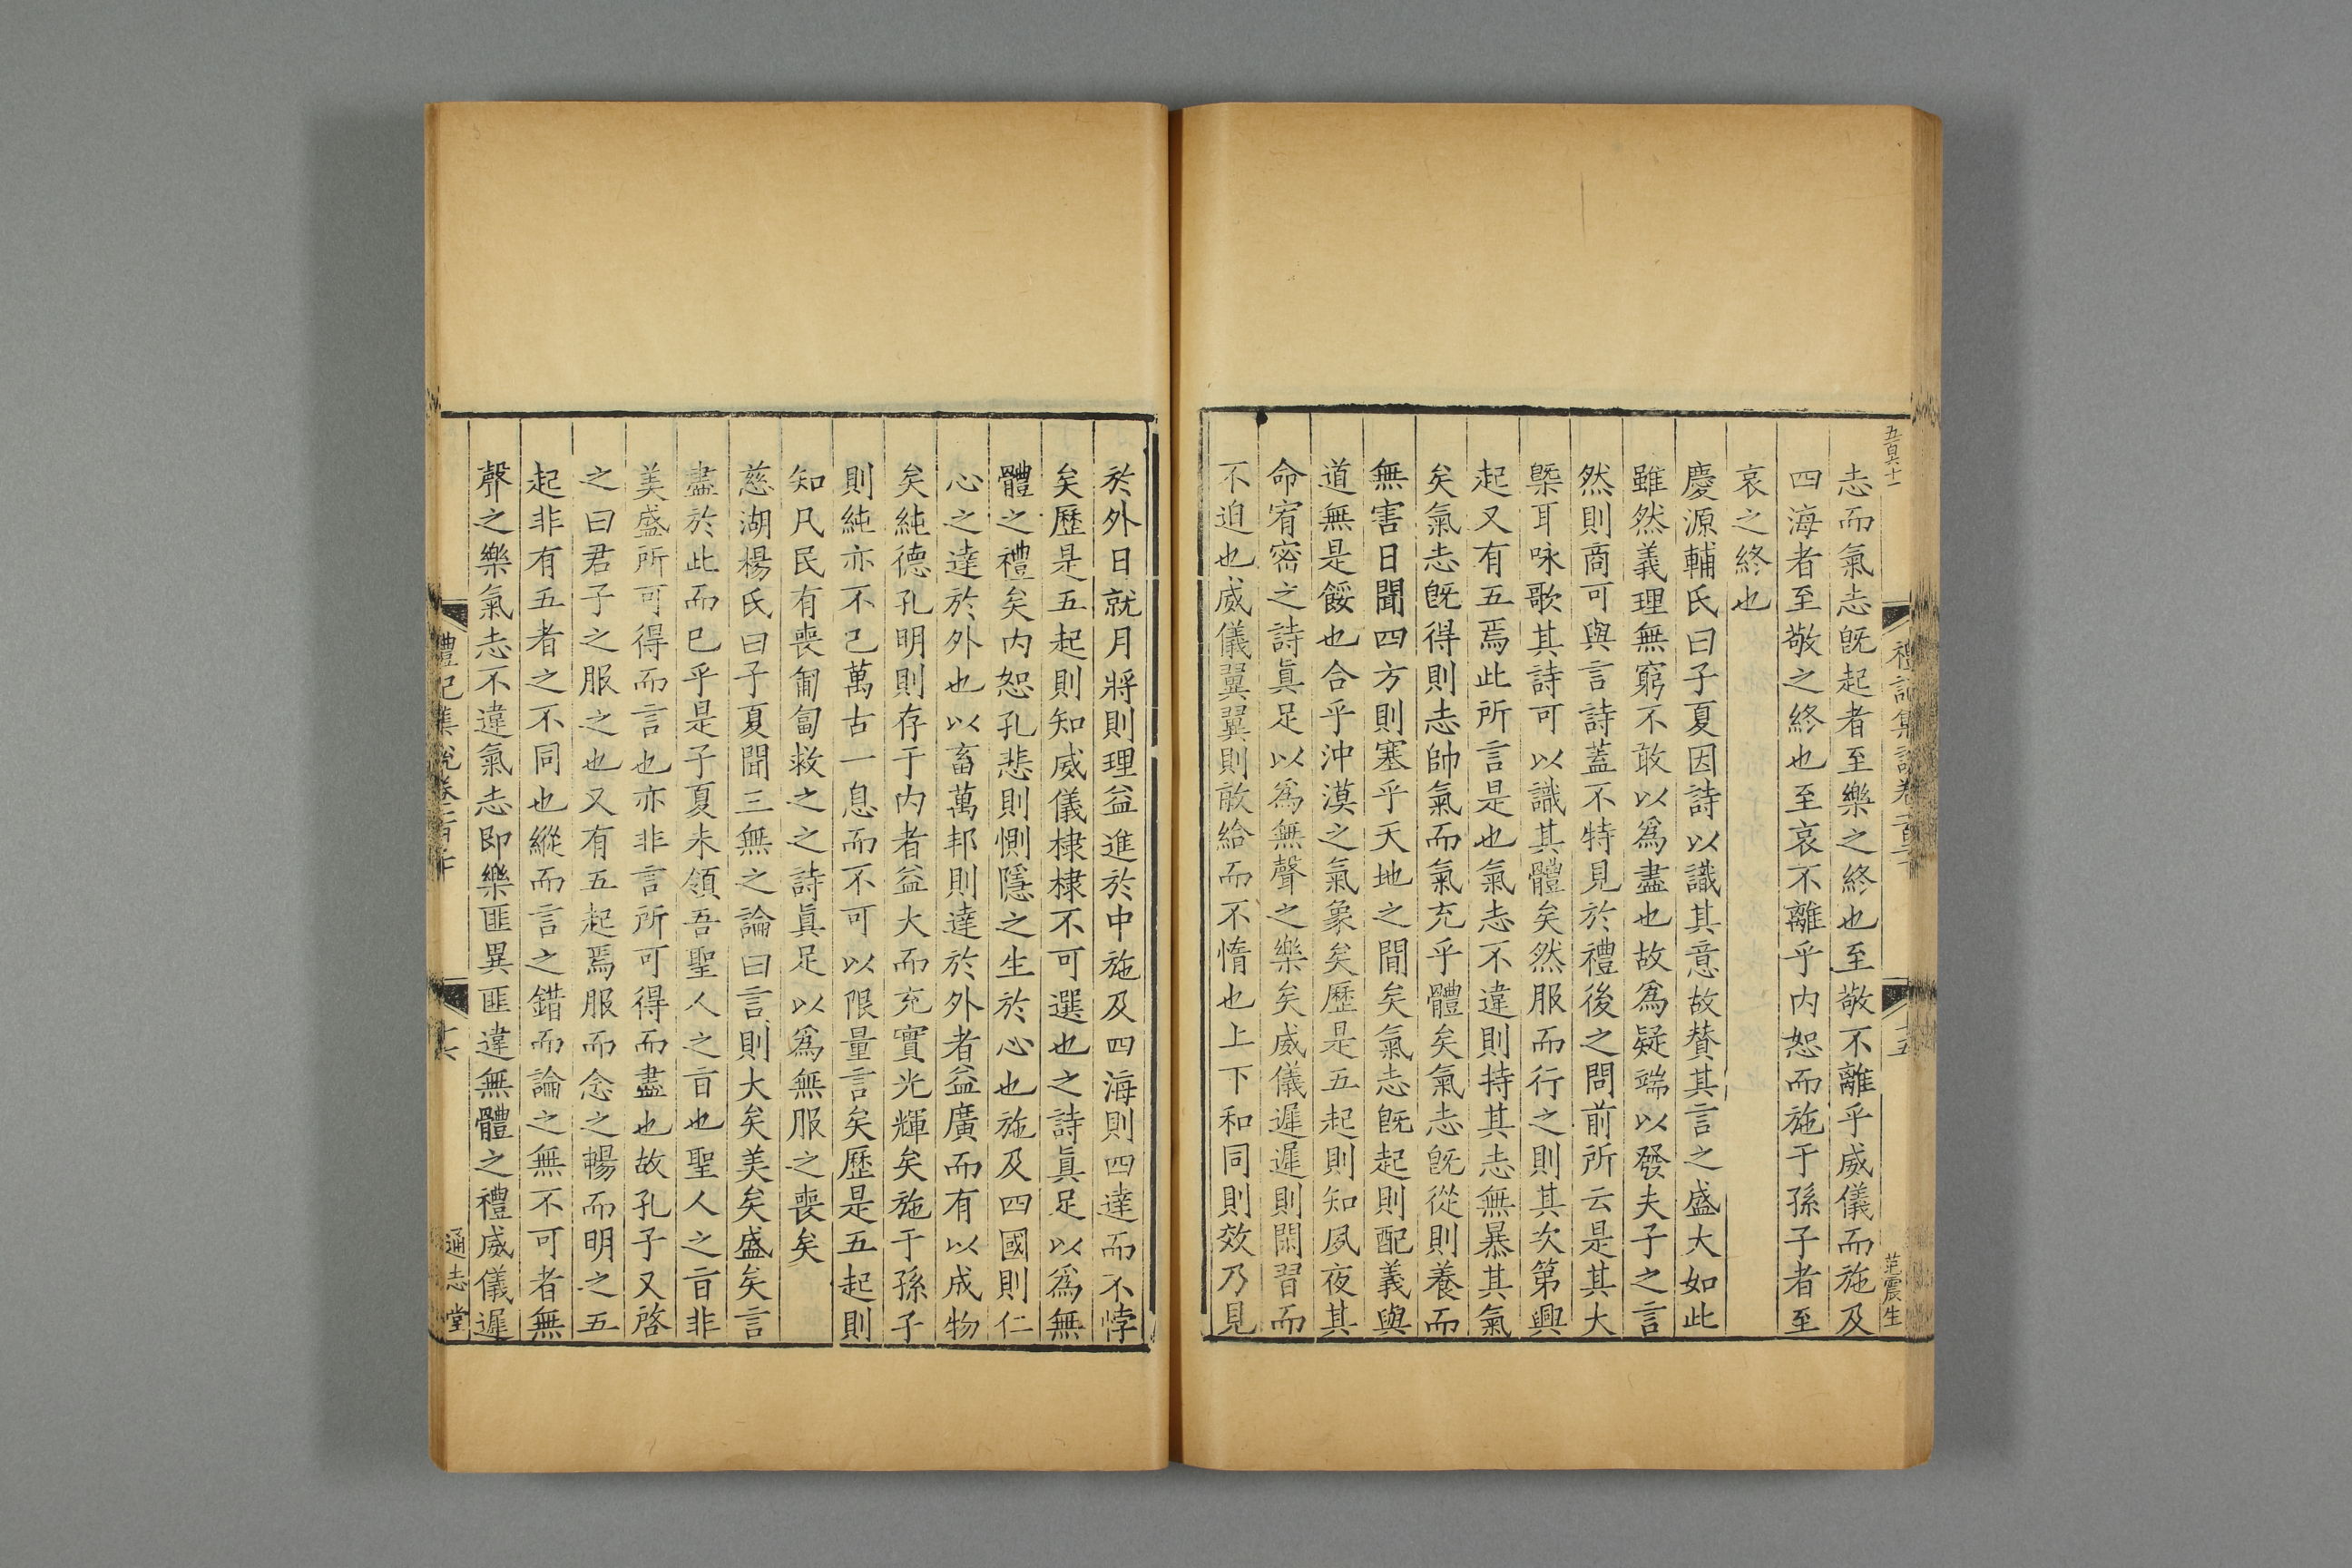 五百六十一
志而氣志旣起者至樂之終也至敬不離乎威儀而施及
四海者至敬之終也至哀不離乎內恕而施于孫子者至
哀之終也
慶源輔氏曰子夏因詩以識其意故賛其言之盛大如此
雖然義理無窮不敢以爲盡也故爲疑端以發夫子之言
然則商可與言詩蓋不特見於禮後之問前所云是其大
槩耳咏歌其詩可以識其體矣然服而行之則其次第興
起又有五焉此所言是也氣志不違則持其志無暴其氣
矣氣志旣得則志帥氣而氣充乎體矣氣志旣從則養而
無害日聞四方則塞乎天地之間矣氣志旣起則配義與
道無是餒也合乎沖漠之氣象矣歷是五起則知夙夜其
命宥密之詩眞足以爲無聲之樂矣威儀遲遲則閑習而
不迫也威儀翼翼則敢給而不惰也上下和同則效乃見
於外日就月將則理益進於中施及四海則四達而不悖
矣歷是五起則知威儀棣棣不可選也之詩眞足以爲無
體之禮矣内恕孔悲則惻隱之生於心也施及四國則仁
心之達於外也以畜萬邦則達於外者益廣而有以成物
矣純德孔明則存于内者益大而充實光輝矣施于孫子
則純亦不已萬古一息而不可以限量言矣歷是五起則
知凡民有喪匍匐救之之詩眞足以爲無服之喪矣
慈湖楊氏曰子夏聞三無之論曰言則大矣美矣盛矣言
盡於此而已乎是子夏未領吾聖人之㫖也聖人之㫖非
美盛所可得而言也亦非言所可得而盡也故孔子又啓
之曰君子之服之也又有五起焉服而念之暢而明之五
起非有五者之不同也縱而言之錯而論之無不可者無
聲之樂氣志不違氣志即樂匪異匪違無體之禮威儀遲
禮記集說卷
十五
范震生
禮記集說卷
十六
通志堂